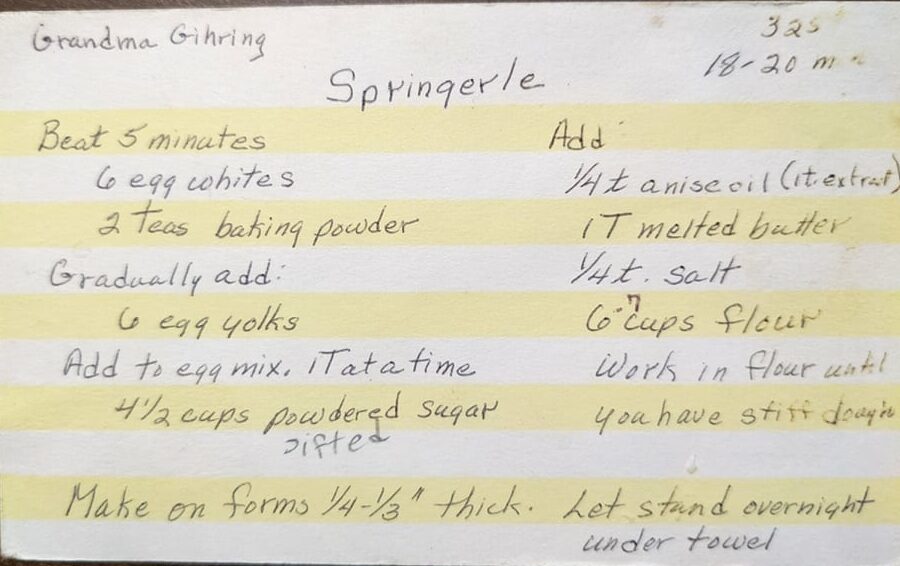 Grandma Gihring
325
18-20 m
Springerle
Beat 5 minutes
6 egg whites
2 teas baking powder
Gradually add:
6 egg yolks
Add to egg mix. 1T at a time
4 1/2 cups powdered sugar
sifted
Add
1/4 t anise oil (1t. extract)
1T melted butter
1/4 t. salt
6-7 cups flour
Work in flour until
you have stiff dough
Make on forms 1/4-1/3" thick. Let stand overnight
under towel